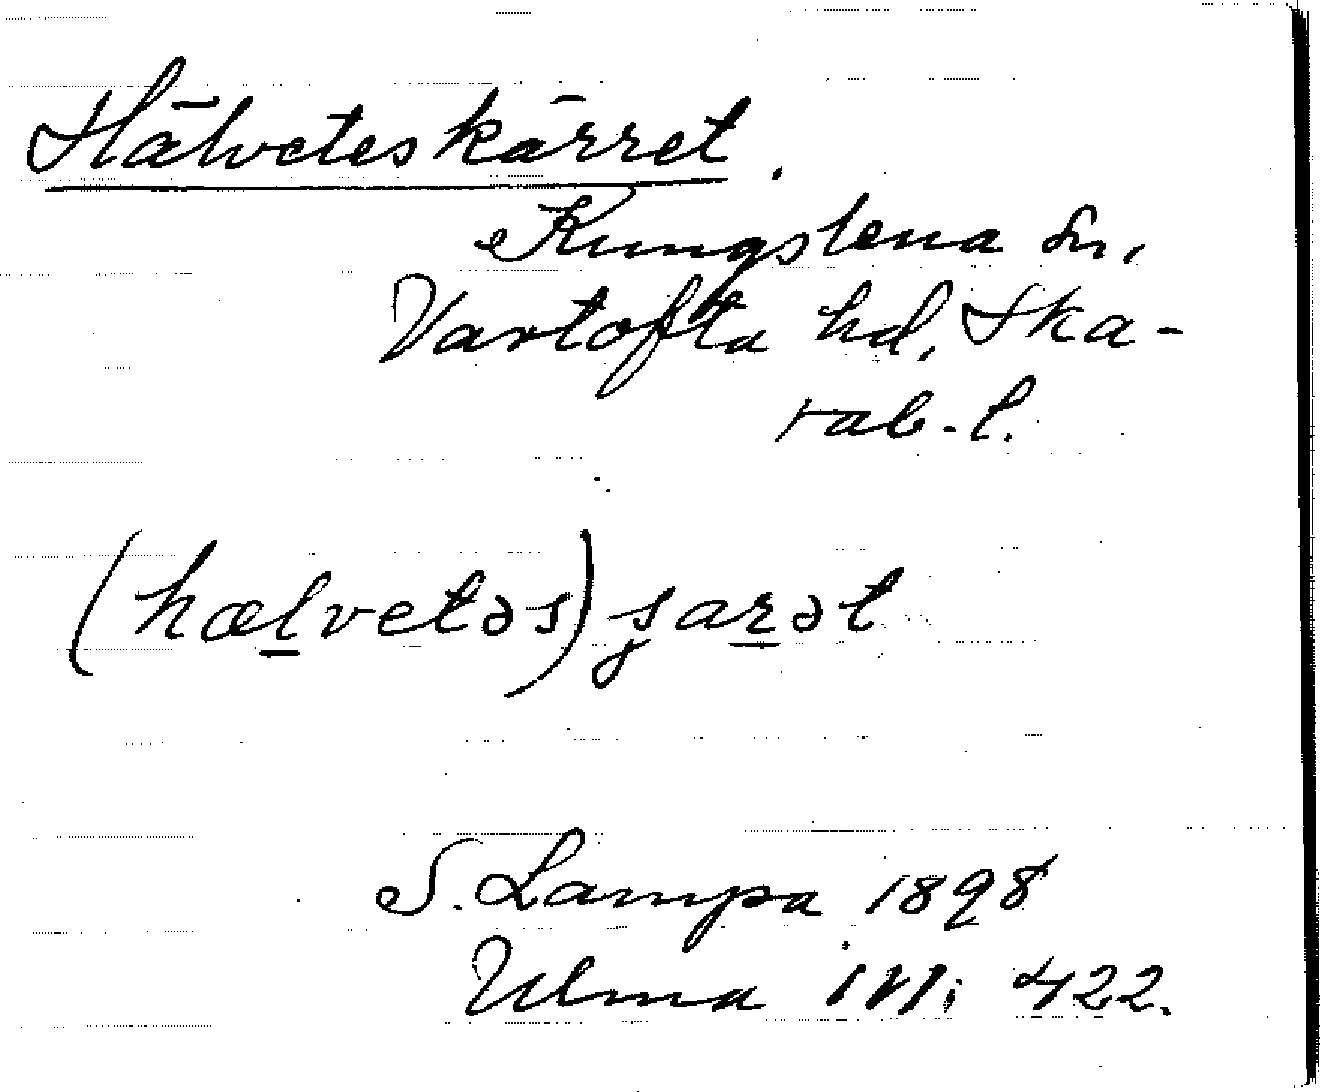 Hälveteskärret.
Kungslena sn,
Vartofta hd, Ska-
rab. l.
(hælvetəs) şarət
S. Lampa 1898
Ulma 422.